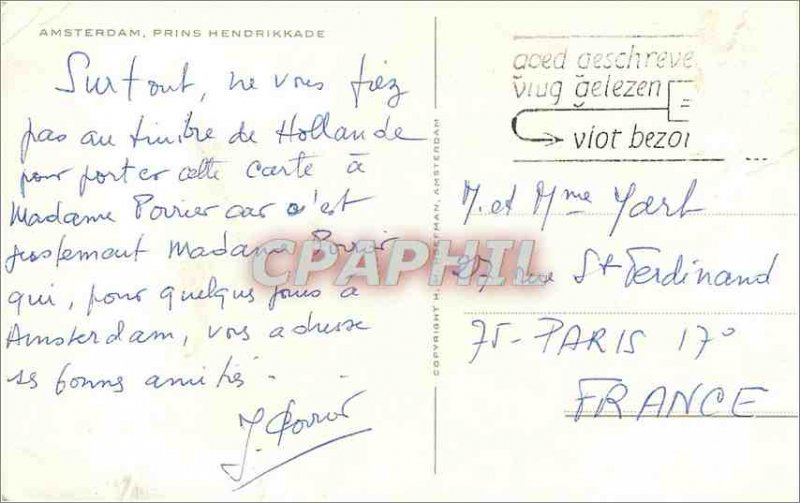 AMSTERDAM, PRINS HENDRIKKADE
Surtout, ne vous fiez
pas au timbre de Hollande
pour porter cette carte à
Madame Poirier car c'est
justement Madame Poirier
qui, pour quelques jours à
Amsterdam, vous adresse
ses bonnes amitiés.
J. Poirier
COPYRIGHT AMSTERDAM
goed geschreve
vlug gelezen
vlot bezor
M. et Mme Yart
27 rue St Ferdinand
75-PARIS 17°
FRANCE
CPAPHIL